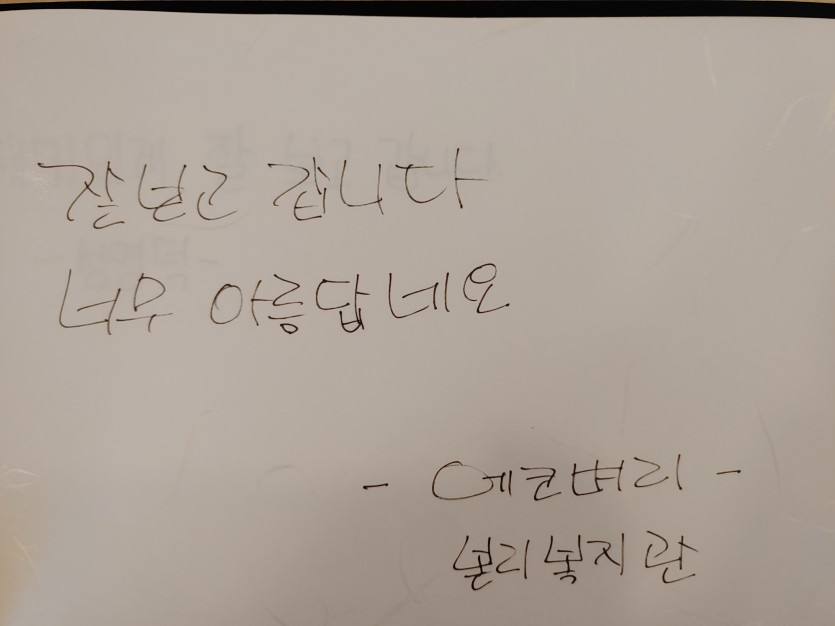 잘보고 갑니다
너무 아름답네요
- 에코벼리 -
본리복지관